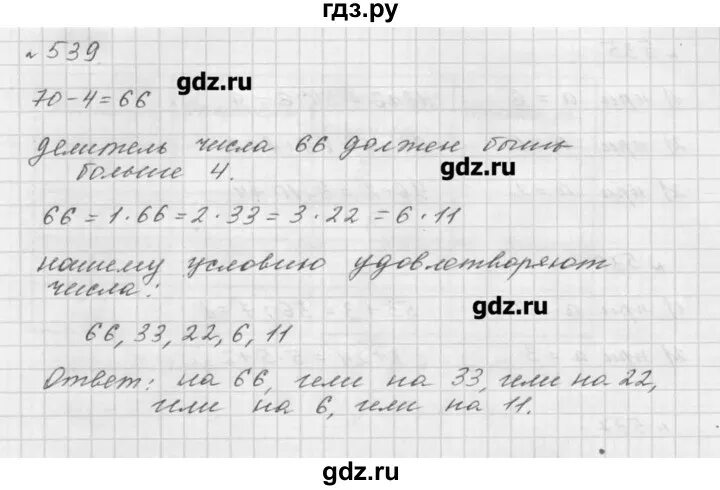 гдз.ру
№ 539
gdz.ru
70-4=66
делитель числа 66 должен быть
больше 4.
gdz.ru
66 = 1·66 = 2·33 = 3·22 = 6·11
нашему условию удовлетворяют
числа:
gdz.ru
66, 33, 22, 6, 11
Ответ: на 66, или на 33, или на 22,
или на 6, или на 11.
gdz.ru